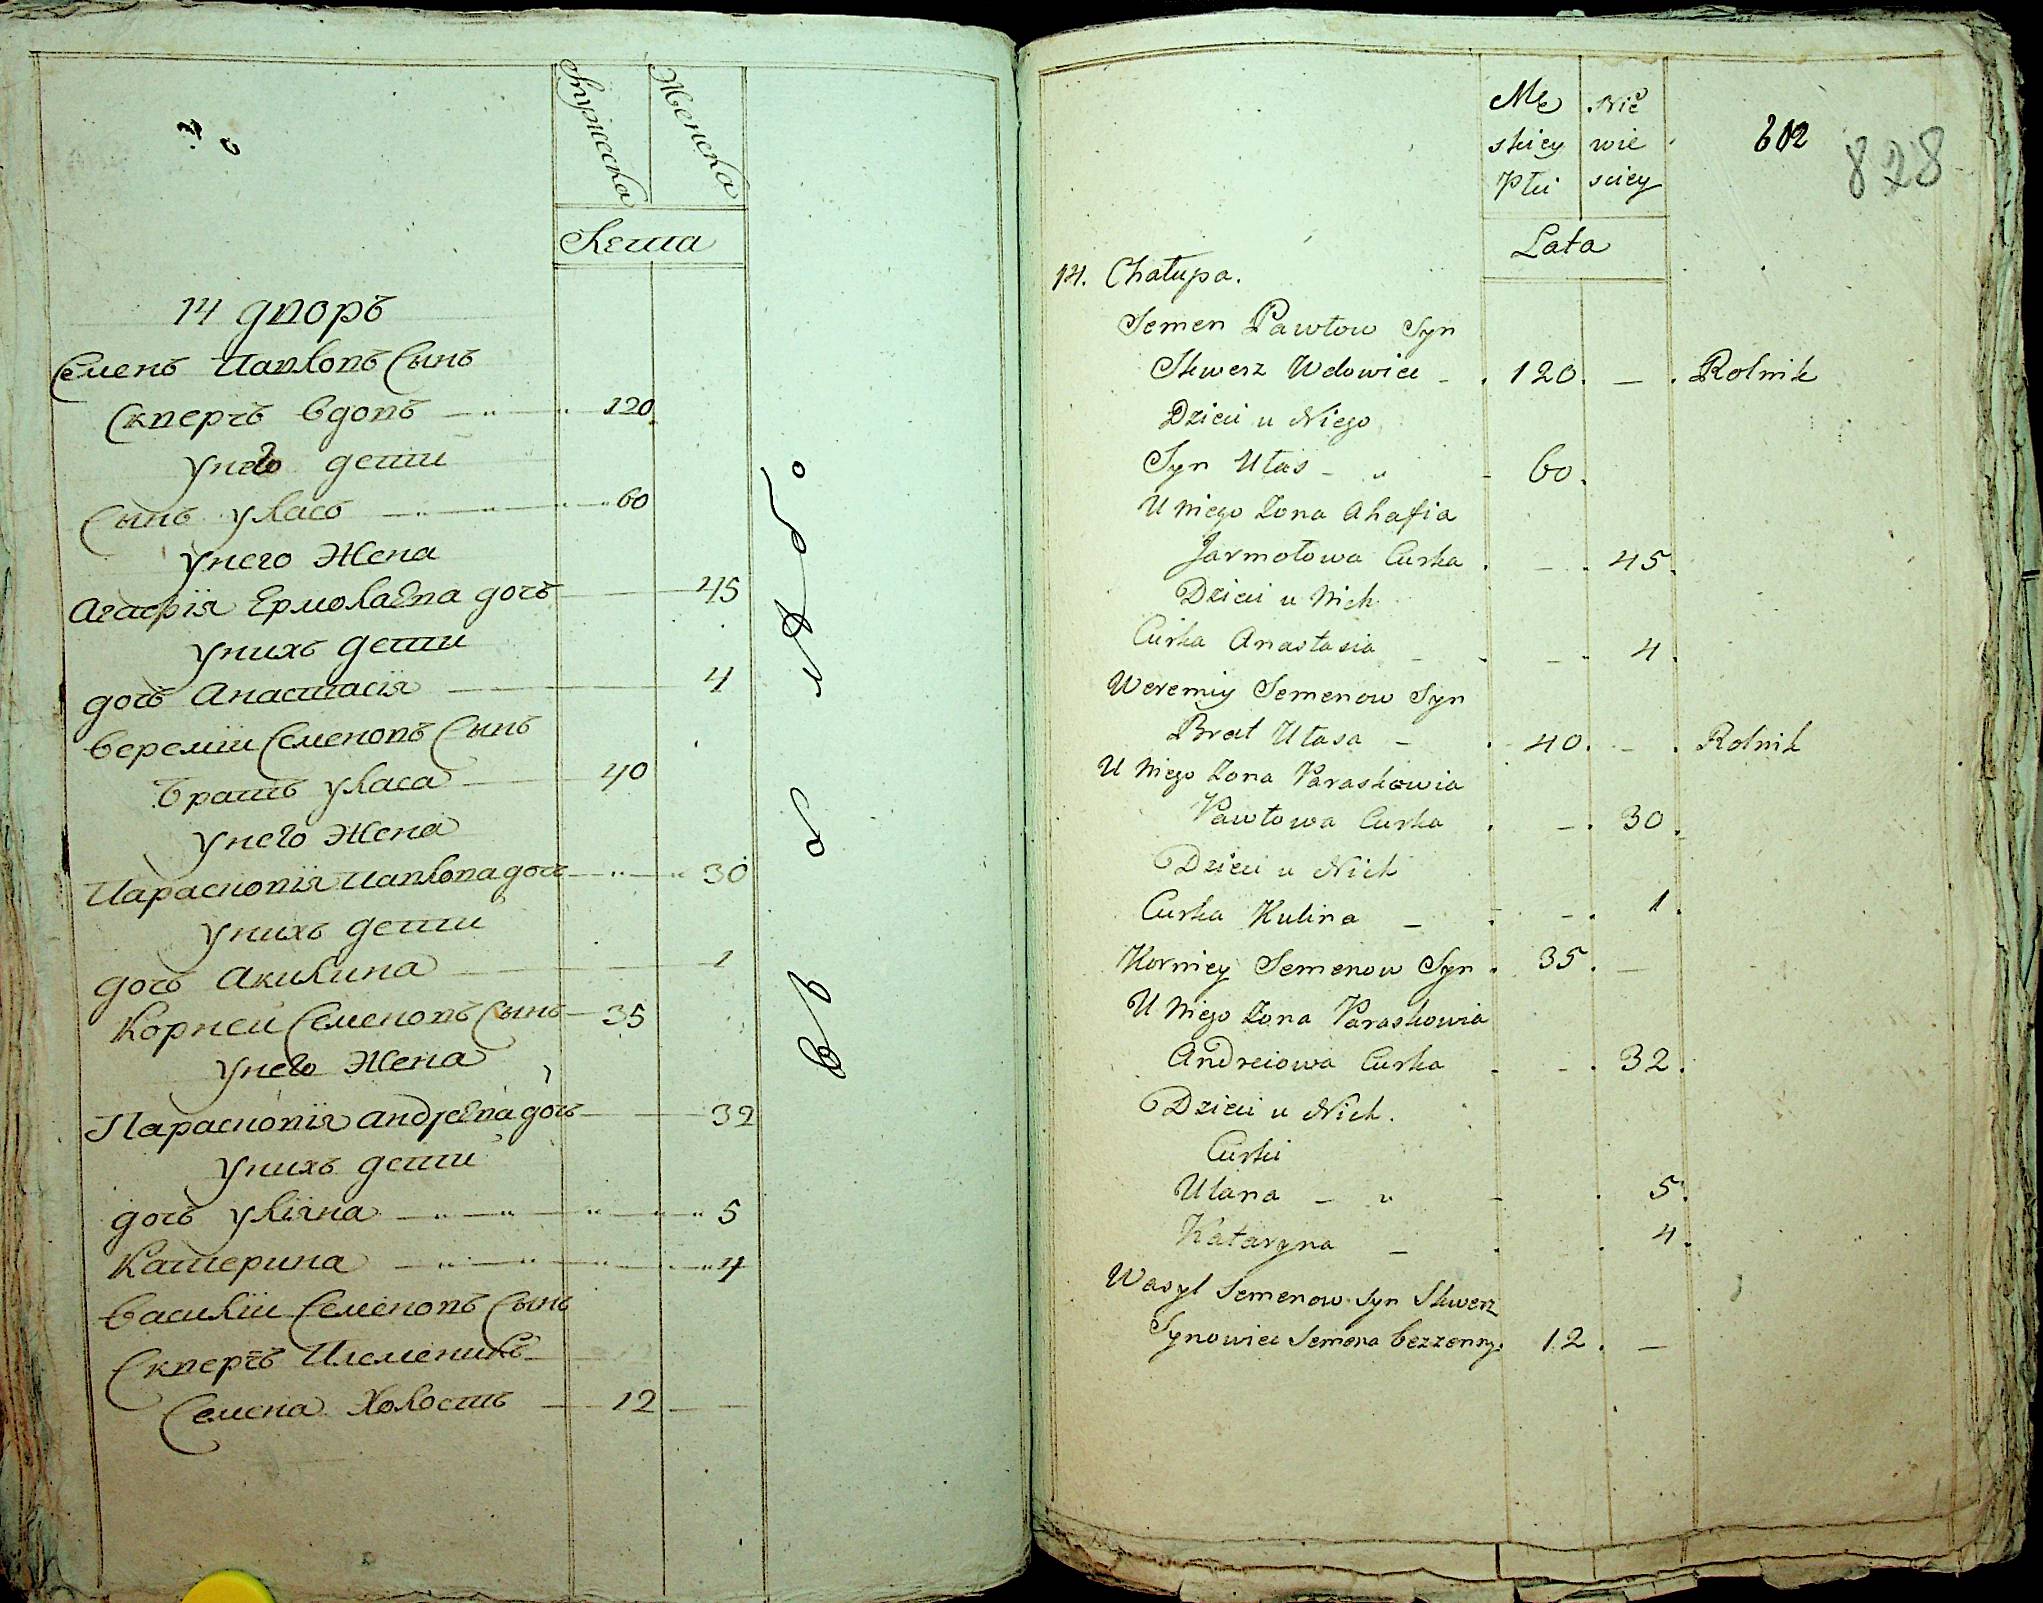 Мужеска
Женска
Лета
14 дворъ
Семенъ Павловъ Сынъ
Скверчъ вдовъ 120
У него дети
Сынъ Уласъ 60
У него Жена
Агафія Ермолаева дочь 45
У нихъ дети
дочь Анастасія 4
Веремій Семеновъ Сынъ
братъ Уласа 40
У него Жена
Парасковія Павлова дочь 30
У нихъ дети
дочь Акилина 1
Корней Семеновъ Сынъ 35
У него Жена
Парасковія Андреева дочь 32
У нихъ дети
дочь Уліяна 5
Катерина 4
Василій Семеновъ Сынъ
Скверчъ Племеникъ
Семена Холостъ 12
Mę
skiey
Płci
Nie
wie
sciey
602
828
Lata
14. Chałupa.
Semen Pawłow Syn
Skwerz Wdowiec - 120. - Rolnik
Dzieci u Niego
Syn Ułas - 60.
U Niego Zona Ahafia
Jarmołowa Curka - 45.
Dzieci u Nich
Curka Anastasia - 4.
Weremiy Semenow Syn
Brat Ułasa - 40. - Rolnik
U Niego Zona Paraskowia
Pawłowa Curka - 30.
Dzieci u Nich
Curka Kulina - 1.
Korniey Semenow Syn 35. -
U Niego Zona Paraskowia
Andreiowa Curka - 32.
Dzieci u Nich.
Curki
Ulana - 5.
Kataryna - 4.
Wasyl Semenow Syn Skwerz
Synowiec Semena bezzenny. 12. -